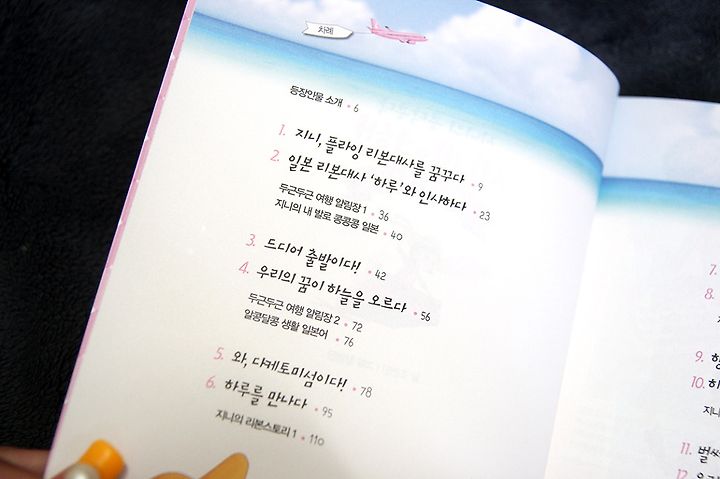 차례
등장인물 소개 • 6
1. 지니, 플라잉 리본대사를 꿈꾸다 • 9
2. 일본 리본대사 '하루'와 인사하다 • 23
두근두근 여행 알림장 1 • 36
지니의 내 발로 콩콩콩 일본 • 40
3. 드디어 출발이다! • 42
4. 우리의 꿈이 하늘을 오르다 • 56
두근두근 여행 알림장 2 • 72
알콩달콩 생활 일본어 • 76
5. 와, 다케토미섬이다! • 78
6. 하루를 만나다 • 95
지니의 리본스토리 1 • 110
7.
8.
9.
10.
지니
11. 벌써
12.